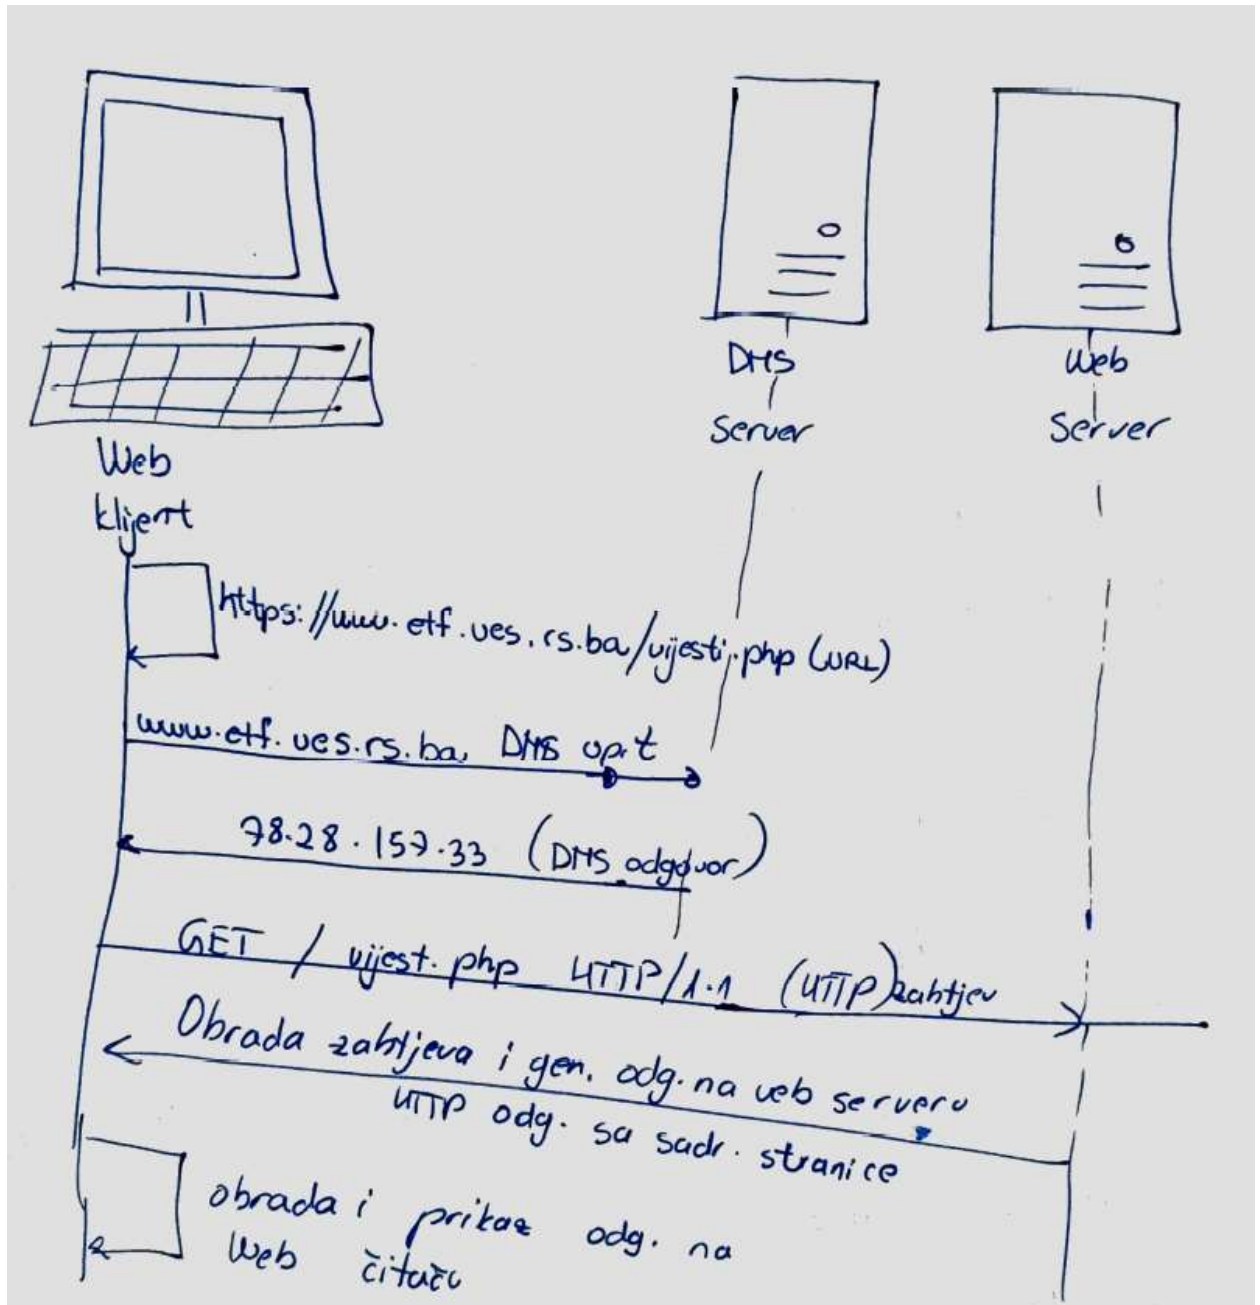 DNS
Server
Web
Server
Web
klijent
https://www.etf.ues.rs.ba/vijesti.php (URL)
www.etf.ues.rs.ba, DNS upit
78.28.157.33 (DNS odgovor)
GET / vijest.php HTTP/1.1 (HTTP) zahtjev
Obrada zahtjeva i gen. odg. na veb serveru
HTTP odg. sa sadr. stranice
obrada i prikaz odg. na
Web čitaču